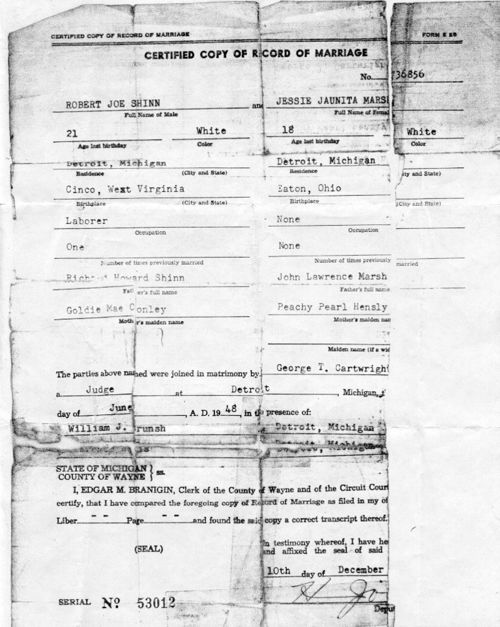 CERTIFIED COPY OF RECORD OF MARRIAGE FORM E 28
CERTIFIED COPY OF RECORD OF MARRIAGE
No. 36856
ROBERT JOE SHINN and JESSIE JAUNITA MARS
Full Name of Male Full Name of Femal
21 White 18 White
Age last birthday Color Age last birthday Color
Detroit, Michigan Detroit, Michigan
Residence (City and State) Residence ity and State)
Cinco, West Virginia Eaton, Ohio
Birthplace (City and State) Birthplace (City and State)
Laborer None
Occupation Occupation
One None
Number of times previously married Number of times previously married
Howard Shinn John Lawrence Marsh
Father's full name Father's full name
Goldie Mae Conley Peachy Pearl Hensly
Mother's maiden name Mother's maiden nam
Maiden name (if a wid
The parties above named were joined in matrimony by George T. Cartwright
a Judge at Detroit Michigan,
day of June, A. D. 1948, in the presence of:
William J. Detroit, Michigan
Detroit, Michigan
STATE OF MICHIGAN } ss.
COUNTY OF WAYNE
I, EDGAR M. BRANIGIN, Clerk of the County of Wayne and of the Circuit Cour
certify, that I have compared the foregoing copy of Record of Marriage as filed in my of
Liber - - Page - - and found the said copy a correct transcript thereof.
In testimony whereof, I have he
(SEAL) and affixed the seal of said
10th day of December
Deput
SERIAL Nº 53012